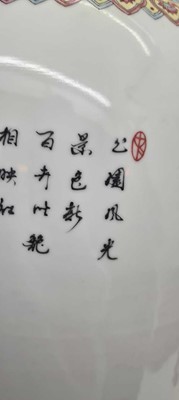 公園風光
景色新
百卉吐艷
相映紅